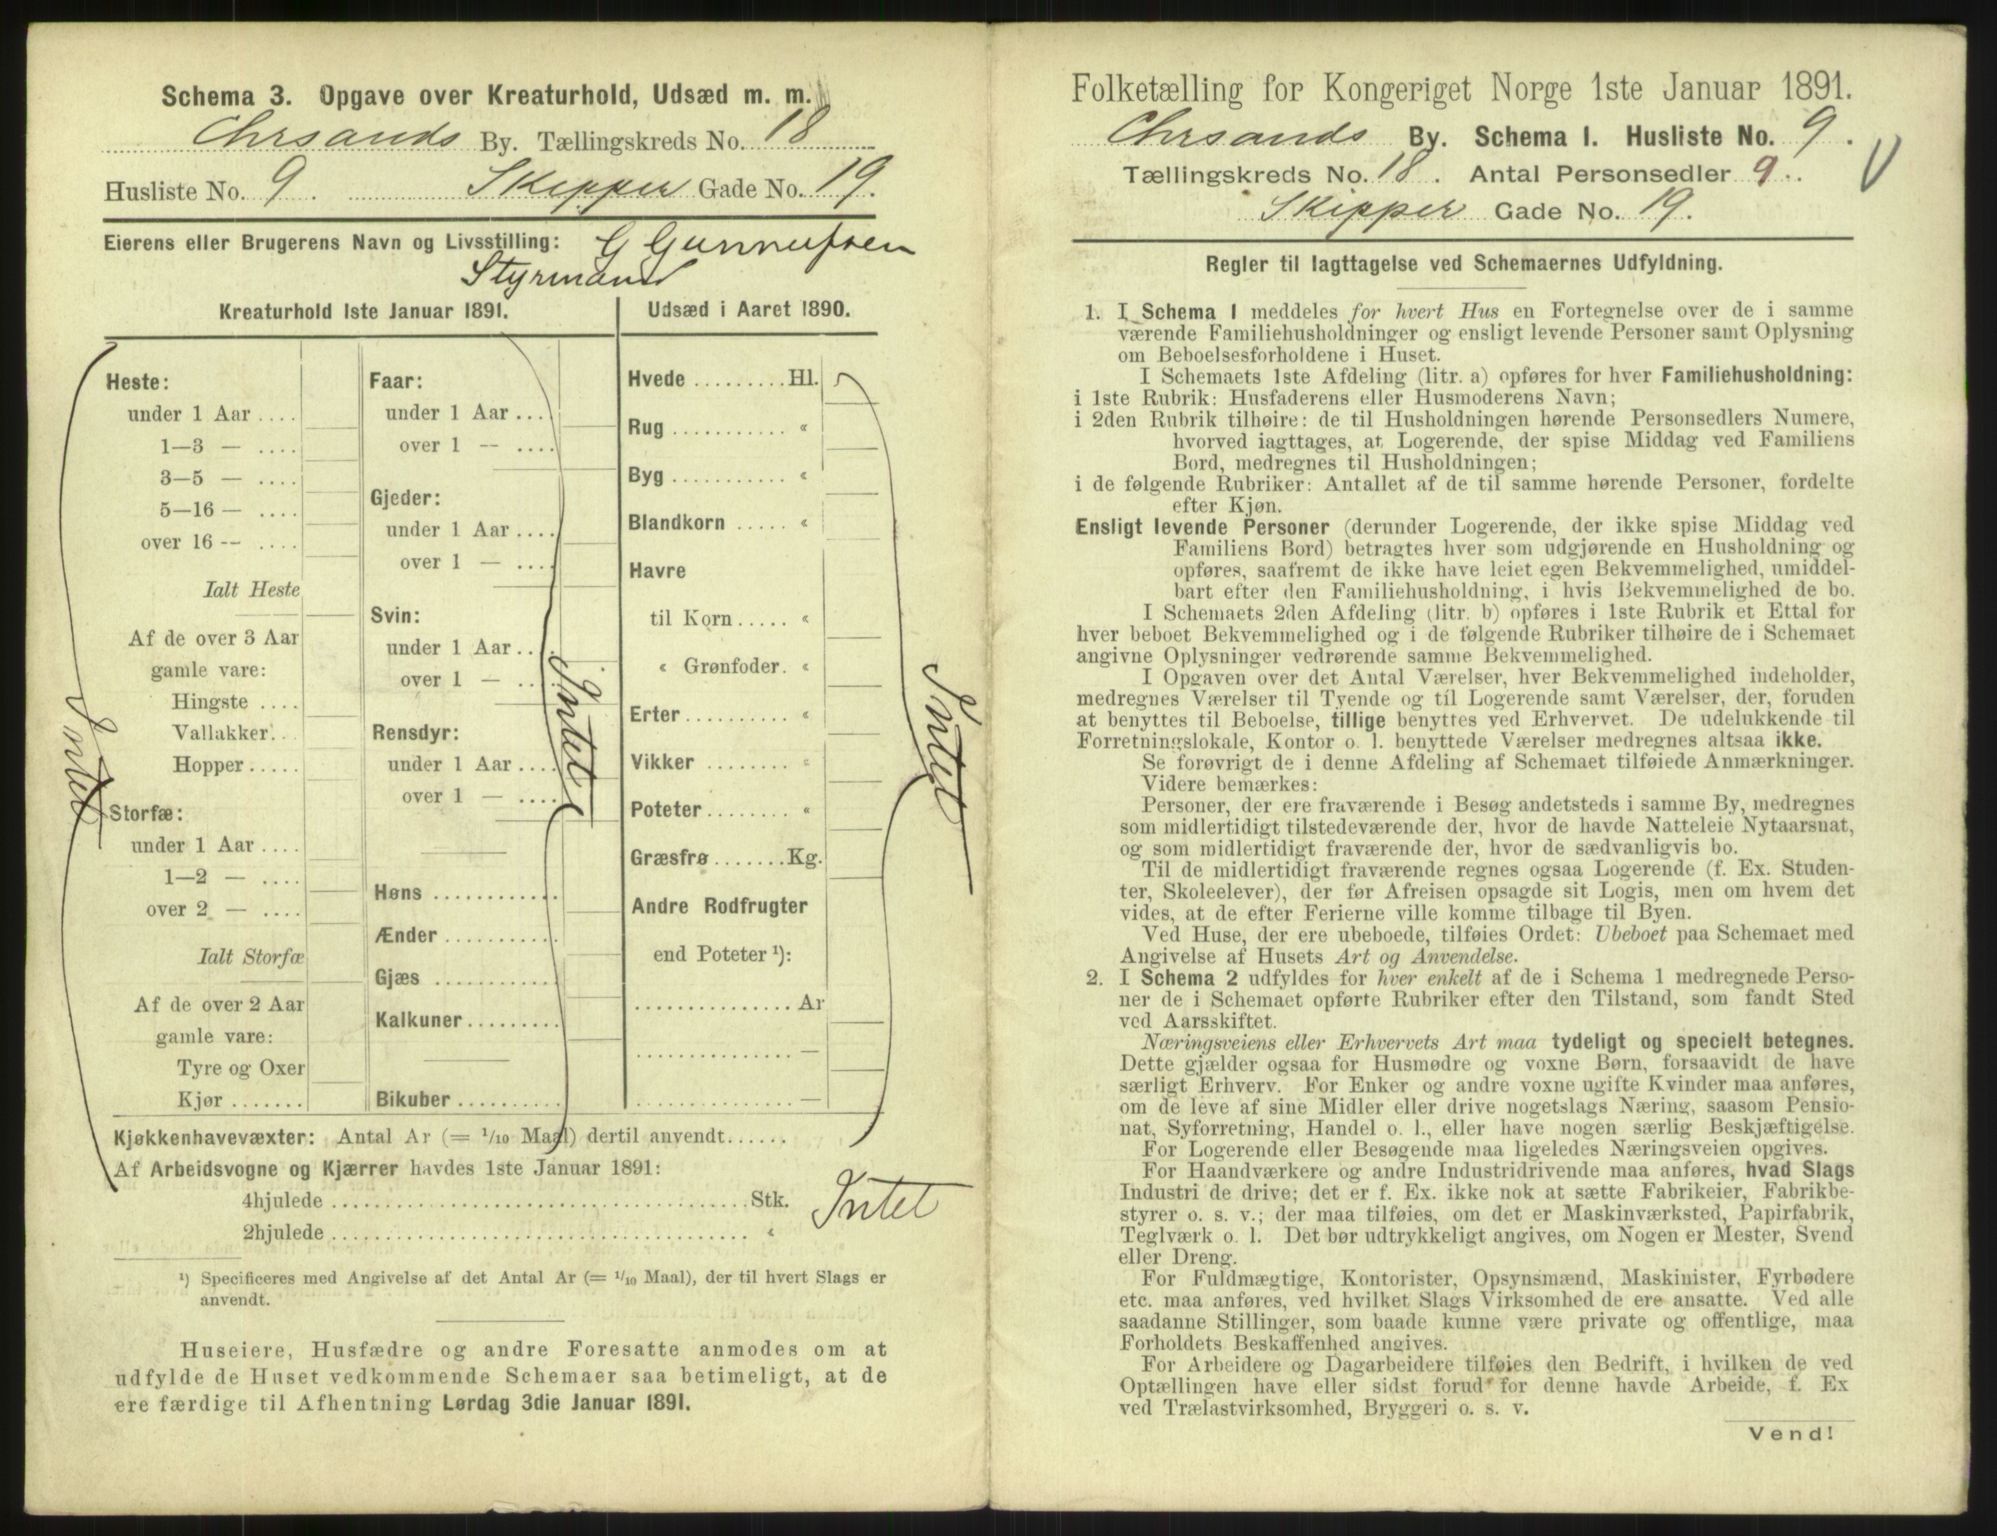 Schema 3. Opgave over Kreaturhold, Udsæd m. m.
Chrsands By. Tællingskreds No. 18
Husliste No. 9. Skipper Gade No. 19.
Eierens eller Brugerens Navn og Livsstilling: G Gunnufsen
Styrmand
Kreaturhold 1ste Januar 1891.
Heste:
under 1 Aar ....
1—3 — ....
3—5 — ....
5—16 — ....
over 16 -- ....
Ialt Heste
Af de over 3 Aar
gamle vare:
Hingste ....
Vallakker...
Hopper .....
Storfæ:
under 1 Aar ....
1—2 — ....
over 2 — ....
Ialt Storfæ
Af de over 2 Aar
gamle vare:
Tyre og Oxer
Kjør .......
Intet
Faar:
under 1 Aar ....
over 1 -- ....
Gjeder:
under 1 Aar ....
over 1 — ....
Svin:
under 1 Aar ....
over 1 — ....
Rensdyr:
under 1 Aar ....
over 1 — ....
Høns ............
Ænder ...........
Gjæs ............
Kalkuner.........
Bikuber ..........
Intet
Udsæd i Aaret 1890.
Hvede .........Hl.
Rug ........... «
Byg ........... «
Blandkorn ..... «
Havre
til Korn ..... «
« Grønfoder. «
Erter .......... «
Vikker ......... «
Poteter ........ «
Græsfrø .......Kg.
Andre Rodfrugter
end Poteter ¹):
...............Ar
............... —
............... —
Intet
Kjøkkenhavevæxter: Antal Ar (= 1/10 Maal) dertil anvendt......
Af Arbeidsvogne og Kjærrer havdes 1ste Januar 1891:
4hjulede ......................................Stk.
2hjulede ...................................... «
Intet
¹) Specificeres med Angivelse af det Antal Ar (= 1/10 Maal), der til hvert Slags er
anvendt.
Huseiere, Husfædre og andre Foresatte anmodes om at
udfylde de Huset vedkommende Schemaer saa betimeligt, at de
ere færdige til Afhentning Lørdag 3die Januar 1891.
Folketælling for Kongeriget Norge 1ste Januar 1891.
Chrsands By. Schema I. Husliste No. 9.
Tællingskreds No. 18. Antal Personsedler 9..
Skipper Gade No. 19.
Regler til Iagttagelse ved Schemaernes Udfyldning.
1. I Schema I meddeles for hvert Hus en Fortegnelse over de i samme
værende Familiehusholdninger og ensligt levende Personer samt Oplysning
om Beboelsesforholdene i Huset.
I Schemaets 1ste Afdeling (litr. a) opføres for hver Familiehusholdning:
i 1ste Rubrik: Husfaderens eller Husmoderens Navn;
i 2den Rubrik tilhøire: de til Husholdningen hørende Personsedlers Numere,
hvorved iagttages, at Logerende, der spise Middag ved Familiens
Bord, medregnes til Husholdningen;
i de følgende Rubriker: Antallet af de til samme hørende Personer, fordelte
efter Kjøn.
Ensligt levende Personer (derunder Logerende, der ikke spise Middag ved
Familiens Bord) betragtes hver som udgjørende en Husholdning og
opføres, saafremt de ikke have leiet egen Bekvemmelighed, umiddel-
bart efter den Familiehusholdning, i hvis Bekvemmelighed de bo.
I Schemaets 2den Afdeling (litr. b) opføres i 1ste Rubrik et Ettal for
hver beboet Bekvemmelighed og i de følgende Rubriker tilhøire de i Schemaet
angivne Oplysninger vedrørende samme Bekvemmelighed.
I Opgaven over det Antal Værelser, hver Bekvemmelighed indeholder,
medregnes Værelser til Tyende og til Logerende samt Værelser, der, foruden
at benyttes til Beboelse, tillige benyttes ved Erhvervet. De udelukkende til
Forretningslokale, Kontor o. l. benyttede Værelser medregnes altsaa ikke.
Se forøvrigt de i denne Afdeling af Schemaet tilføiede Anmærkninger.
Videre bemærkes:
Personer, der ere fraværende i Besøg andetsteds i samme By, medregnes
som midlertidigt tilstedeværende der, hvor de havde Natteleie Nytaarsnat,
og som midlertidigt fraværende der, hvor de sædvanligvis bo.
Til de midlertidigt fraværende regnes ogsaa Logerende (f. Ex. Studen-
ter, Skoleelever), der før Afreisen opsagde sit Logis, men om hvem det
vides, at de efter Ferierne ville komme tilbage til Byen.
Ved Huse, der ere ubeboede, tilføies Ordet: Ubeboet paa Schemaet med
Angivelse af Husets Art og Anvendelse.
2. I Schema 2 udfyldes for hver enkelt af de i Schema 1 medregnede Perso-
ner de i Schemaet opførte Rubriker efter den Tilstand, som fandt Sted
ved Aarsskiftet.
Næringsveiens eller Erhvervets Art maa tydeligt og specielt betegnes.
Dette gjælder ogsaa for Husmødre og voxne Børn, forsaavidt de have
særligt Erhverv. For Enker og andre voxne ugifte Kvinder maa anføres,
om de leve af sine Midler eller drive nogetslags Næring, saasom Pensio-
nat, Syforretning, Handel o. l., eller have nogen særlig Beskjæftigelse.
For Logerende eller Besøgende maa ligeledes Næringsveien opgives.
For Haandværkere og andre Industridrivende maa anføres, hvad Slags
Industri de drive; det er f. Ex. ikke nok at sætte Fabrikeier, Fabrikbe-
styrer o. s. v.; der maa tilføies, om det er Maskinværksted, Papirfabrik,
Teglværk o. l. Det bør udtrykkeligt angives, om Nogen er Mester, Svend
eller Dreng.
For Fuldmægtige, Kontorister, Opsynsmænd, Maskinister, Fyrbødere
etc. maa anføres, ved hvilket Slags Virksomhed de ere ansatte. Ved alle
saadanne Stillinger, som baade kunne være private og offentlige, maa
Forholdets Beskaffenhed angives.
For Arbeidere og Dagarbeidere tilføies den Bedrift, i hvilken de ved
Optællingen have eller sidst forud for denne havde Arbeide, f. Ex
ved Trælastvirksomhed, Bryggeri o. s. v.
Vend!